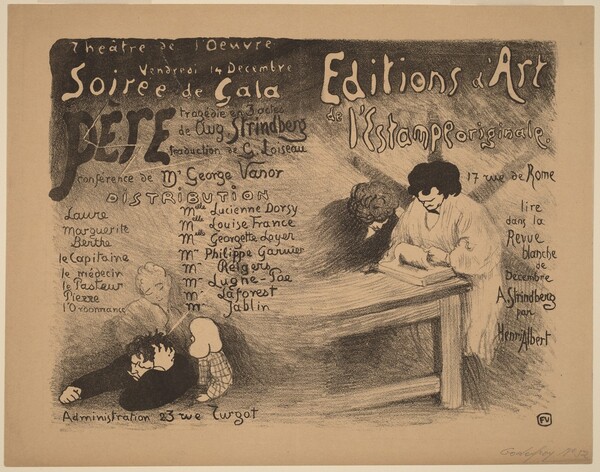 Théâtre de l'Oeuvre
Vendredi 14 Decembre
Soirée de Gala
PÈRE
tragédie en 3 actes
de Aug Strindberg
traduction de G. Loiseau
conférence de Mr George Vanor
DISTRIBUTION
Laure Melle Lucienne Dorsy
Marguerite Melle Louise France
Berthe Melle Georgette Loyer
le Capitaine Mr Philippe Garnier
le médecin Mr Réigers
le Pasteur Mr Lugné-Poe
Pierre Mr Laforest
l'Ordonnance Mr Jablin
Administration 23 rue Turgot
Editions d'Art
de l'Estampe originale.
17 rue de Rome
lire
dans la
Revue
blanche
de
Décembre
A. Strindberg
par
Henri Albert
FV